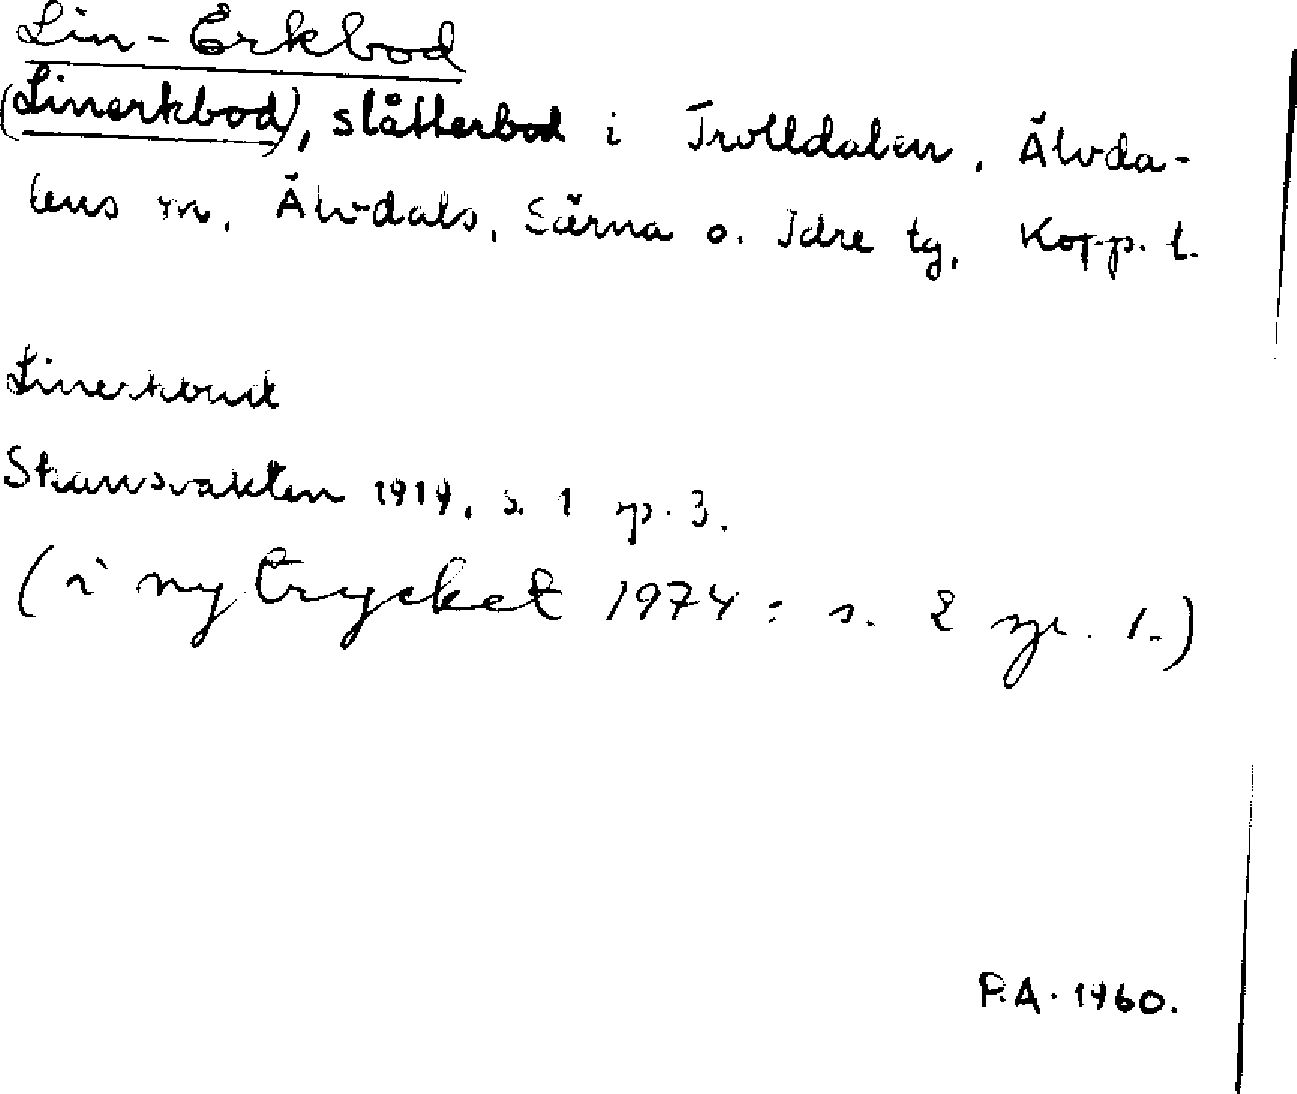 Lin-Erkbod
(Linerkbod), slåtterbod i Trolldalen, Älvda-
lens sn, Älvdals, Särna o. Idre tg, Kopp. l.
Linerkbud
Skansvakten 1919, s. 1 sp. 3.
(i nytrycket 1974: s. 2 sp. 1.)
P.A. 1960.